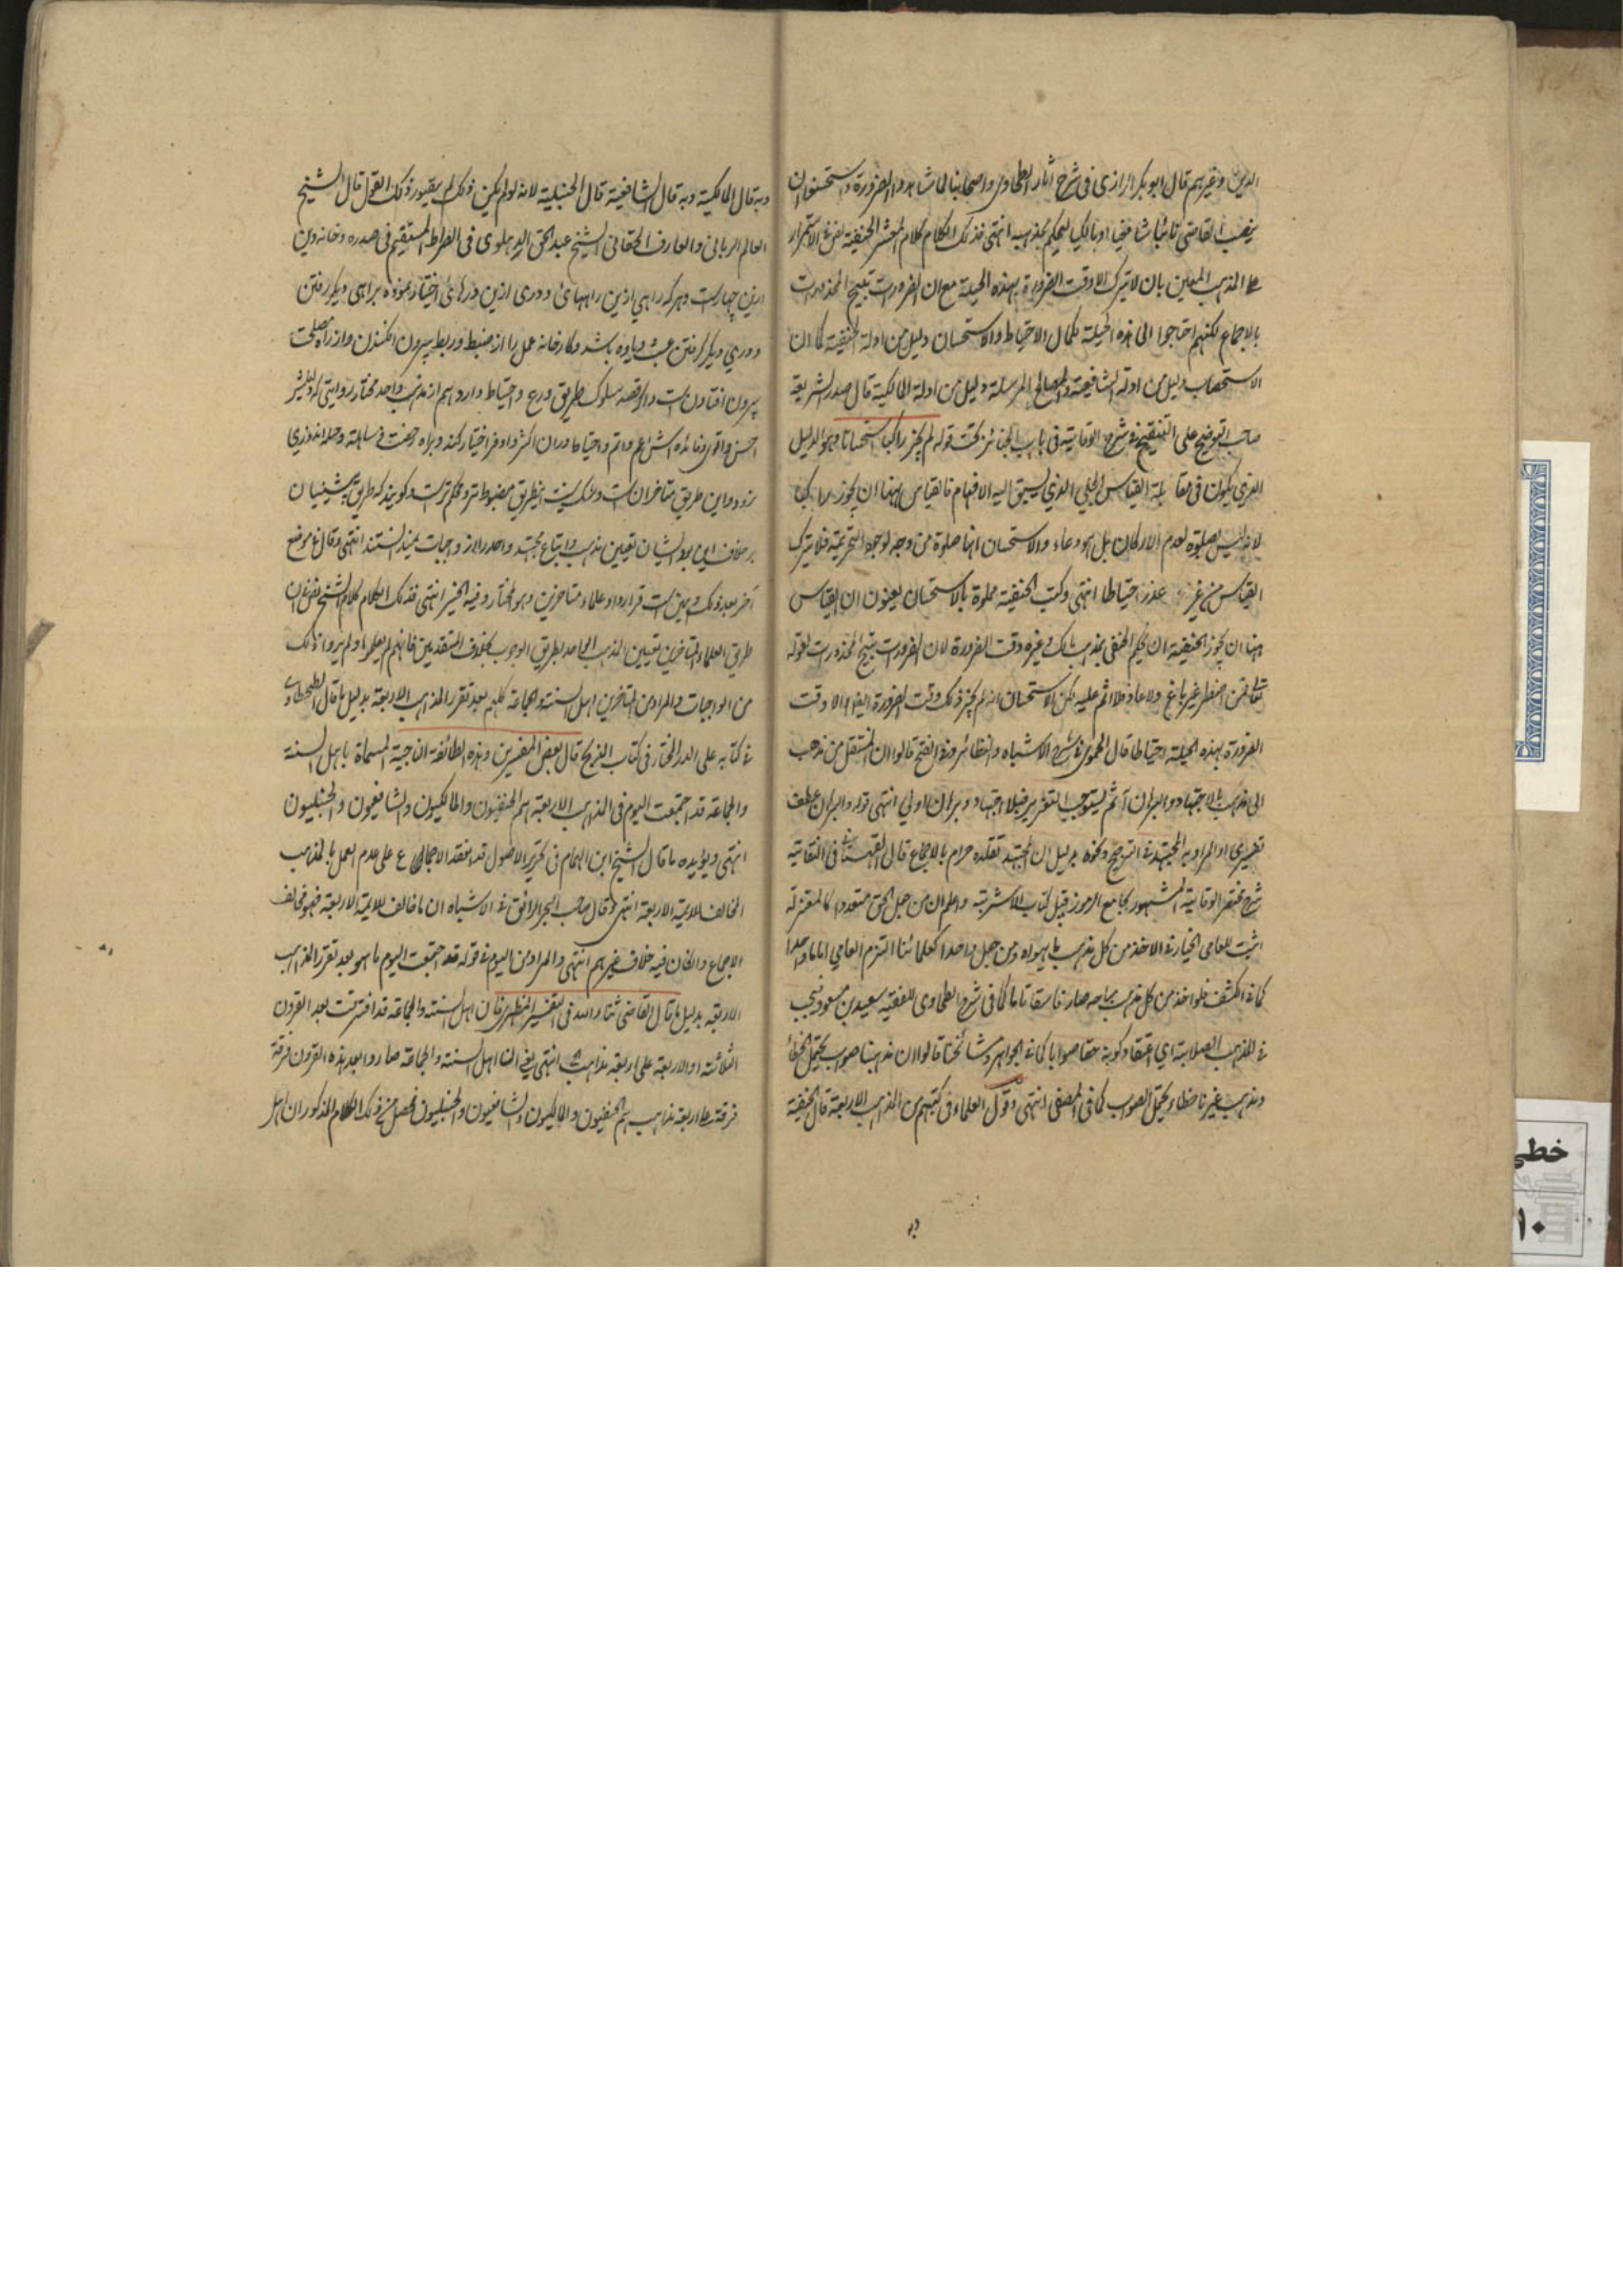 الدين وغيرهم قال ابو بكر الرازى فى شرح آثار الطحاوى واصحابنا لما شاهدوا الضرورة استحسنوا ان
ينصب القاضى نائبا شافعيا او مالكيا ليحكم بمذهبه انتهى فذلك الكلام كلام لمعشر الحنفية نص فى الاستمرار
على المذهب المعين بان لا يترك الا وقت الضرورة بهذه الحيلة مع ان الضرورات تبيح المحذورات
بالاجماع لكنهم احتاجوا الى هذه الحيلة لكمال الاحتياط والاستحسان دليل من ادلة الحنفية كما ان
الاستصحاب دليل من ادلة الشافعية والمصالح المرسلة دليل من ادلة المالكية قال صدر الشريعة
صاحب التوضيح على التنقيح فى شرح الوقاية فى باب الجنائز تحت قوله لم يجز راكبا استحسانا وهو الدليل
الذى يكون فى مقابلة القياس الجلى الذى يسبق اليه الافهام فالقياس ههنا ان يجوز راكبا
لانه ليس بصلوة لعدم الاركان بل هو دعاء والاستحسان انها صلوة من وجه لوجود التحريمة فلا يترك
القياس من غير عذر احتياطا انتهى وكتب الحنفية مملوة بالاستحسان يعنون ان القياس
ههنا ان يجوز الحنفية ان يحكم الحنفى بمذهب مالك وغيره وقت الضرورة لان الضرورات تبيح المحذورات لقوله
تعالى فمن اضطر غير باغ ولا عاد فلا اثم عليه لكن الاستحسان انه لم يجز ذلك وقت الضرورة ايضا الا وقت
الضرورة بهذه الحيلة احتياطا قال الحموى فى شرح الاشباه والنظائر وفى الفتح قالوا ان المنتقل من مذهب
الى مذهب بالاجتهاد والبرهان آثم يستوجب التعزير فبلا اجتهاد وبرهان اولى انتهى قوله والبرهان عطف
تفسيرى او المراد به المجتهد فى الترجيح ونحوه بدليل ان المجتهد تقلده حرام بالاجماع قال القهستانى فى النقاية
شرح مختصر الوقاية المشهور بجامع الرموز قبيل كتاب الاشربة واعلم ان من جعل الحق متعددا كالمعتزلة
اثبت للعامى الخيار فى الاخذ من كل مذهب ما يهواه ومن جعل واحدا كعلمائنا التزم العامى اماما واحدا
كما فى الكشف فلو اخذ من كل مذهب مباحه صار فاسقا تاما كما فى شرح الطحاوى للفقيه سعيد بن مسعود فيجب
فى المذهب الصلابة اى اعتقاد كونه حقا صوابا كما فى الجواهر ومشائخنا قالوا ان مذهبنا صواب يحتمل الخطأ
ومذهب غيرنا خطاء يحتمل الصواب كما فى المصفى انتهى وقول العلماء فى كتبهم من المذاهب الاربعة قال الحنفية
وبه
وبه قال المالكية وبه قال الشافعية قال الحنبلية لانه لو لم يكن ذلك لم يتصور ذلك القول قال الشيخ
العالم الربانى والعارف الحقانى الشيخ عبد الحق الدهلوى فى الصراط المستقيم فى صدره وخانه دين
ازين چهارست وهركه راهى ازين راههائ ودرى ازين درهائ اختيار نموده براهى ديگر رفتن
ودرى ديگر گرفتن عبث وياوه باشد وكارخانه عمل را از ضبط وربط بيرون افكندن واز راه مصلحت
بيرون افتادن ست واگر قصد سلوك طريق ورع واحتياط دارد هم از مذهب واحد مختار روايتى كه دليلش
احسن واقوى وفائده اش اعم واتم واحتياط دران اكثر واوفر اختيار كند وبراه رخصت مساهله وحيله اندوزى
نرود واين طريق متاخران ست وشك نيست اينطريق مضبوط تر ومحكم ترست وگويند كه طريق پيشينيان
برخلاف اين بود ايشان تعيين مذهب واتباع مجتهد واحد را از واجبات نميدانستند انتهى وقال فى موضع
آخر بعد ذلك وهمين ست قرارداد علماء متاخرين وهو المختار وفيه الخير انتهى فذلك الكلام كلام الشيخ نص فى ان
طريق العلماء المتاخرين تعيين المذهب الواحد بطريق الوجوب بخلاف المتقدمين فانهم لم يعلموا ولم يروا ذلك
من الواجبات والمراد من المتاخرين اهل السنة والجماعة كلهم بعد تقرر المذاهب الاربعة بدليل ما قال الطحطاوى
فى كتابه على الدر المختار فى كتاب الذبائح قال بعض المفسرين وهذه الطائفة الناجية المسماة باهل السنة
والجماعة قد اجتمعت اليوم فى المذاهب الاربعة هم الحنفيون والمالكيون والشافعيون والحنبليون
انتهى ويؤيده ما قال الشيخ ابن الهمام فى تحرير الاصول قد انعقد الاجماع على عدم العمل بالمذهب
المخالف للايمة الاربعة انتهى وقال صاحب البحر الرائق فى الاشباه ان ما خالف للايمة الاربعة فهو مخالف
الاجماع وان كان فيه خلاف غيرهم انتهى والمراد من اليوم فى قوله قد اجتمعت اليوم ما هو بعد تقرر المذاهب
الاربعة بدليل ما قال القاضى ثناء الله فى التفسير المظهرى فان اهل السنة والجماعة قد افترقت بعد القرون
الثلاثة او الاربعة على اربعة مذاهب انتهى يعنى ان اهل السنة والجماعة صاروا بعد هذه القرون فرقة
فرقة على اربعة مذاهب هم الحنفيون والمالكيون والشافعيون والحنبليون فحصل من ذلك الكلام المذكور ان اهل
خطى
١٠